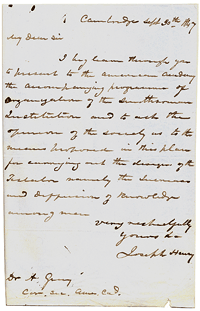 Cambridge Sept 30th 1847
My dear Sir
I beg leave through you
to present to the american academy
the accompanying programme of
organization of the Smithsonian
Institution and to ask the
opinion of the society as to the
means proposed in this plan
for carrying out the design of the
Testator namely the Increase
and diffusion of Knowledge
among men
very respectfully
yours &c
Joseph Henry
Dr A. Gray
Cor. sec. Amer. Acad.